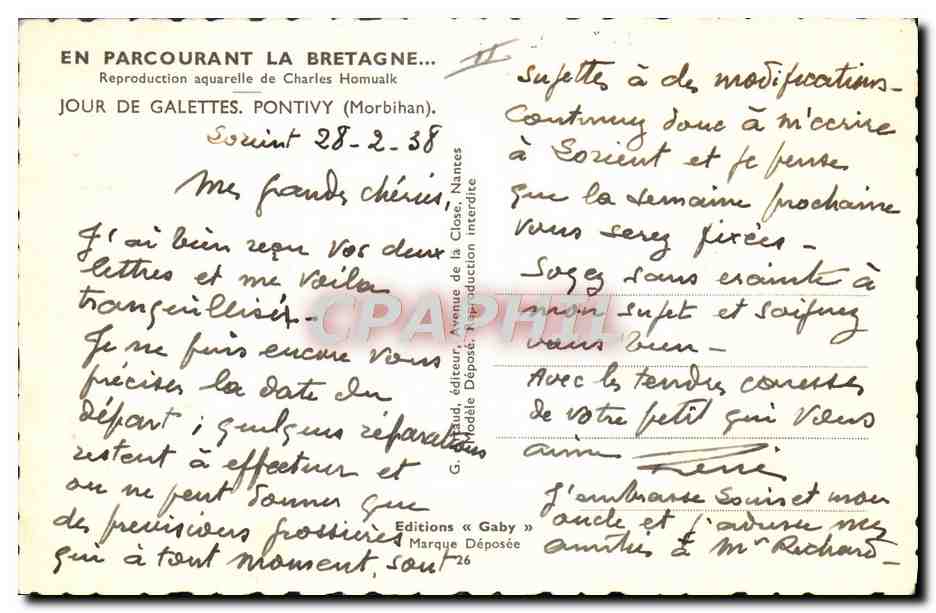 EN PARCOURANT LA BRETAGNE...
Reproduction aquarelle de Charles Homualk
JOUR DE GALETTES. PONTIVY (Morbihan).
Lorient 28-2-38
Mes grandes chéries,
J'ai bien reçu vos deux
lettres et me voila
tranquillisé.-
Je ne puis encore vous
préciser la date du
départ ; quelques réparations
restent à effectuer et
on ne peut donner que
des prévisions grossières
qui à tout moment, sont
G. aud, éditeur, Avenue de la Close, Nantes
Modèle Déposé. Reproduction interdite
Editions « Gaby »
Marque Déposée
26
II
sujettes à des modifications-
Continuez donc à m'écrire
à Lorient et je pense
que la semaine prochaine
vous serez fixées -
Soyez sans crainte à
mon sujet et soignez
vous bien -
Avec les tendres caresses
de votre petit qui vous
aime
J'embrasse Louis et mon
oncle et j'adresse mes
amitiés à Mr Richard -
CPAPHIL